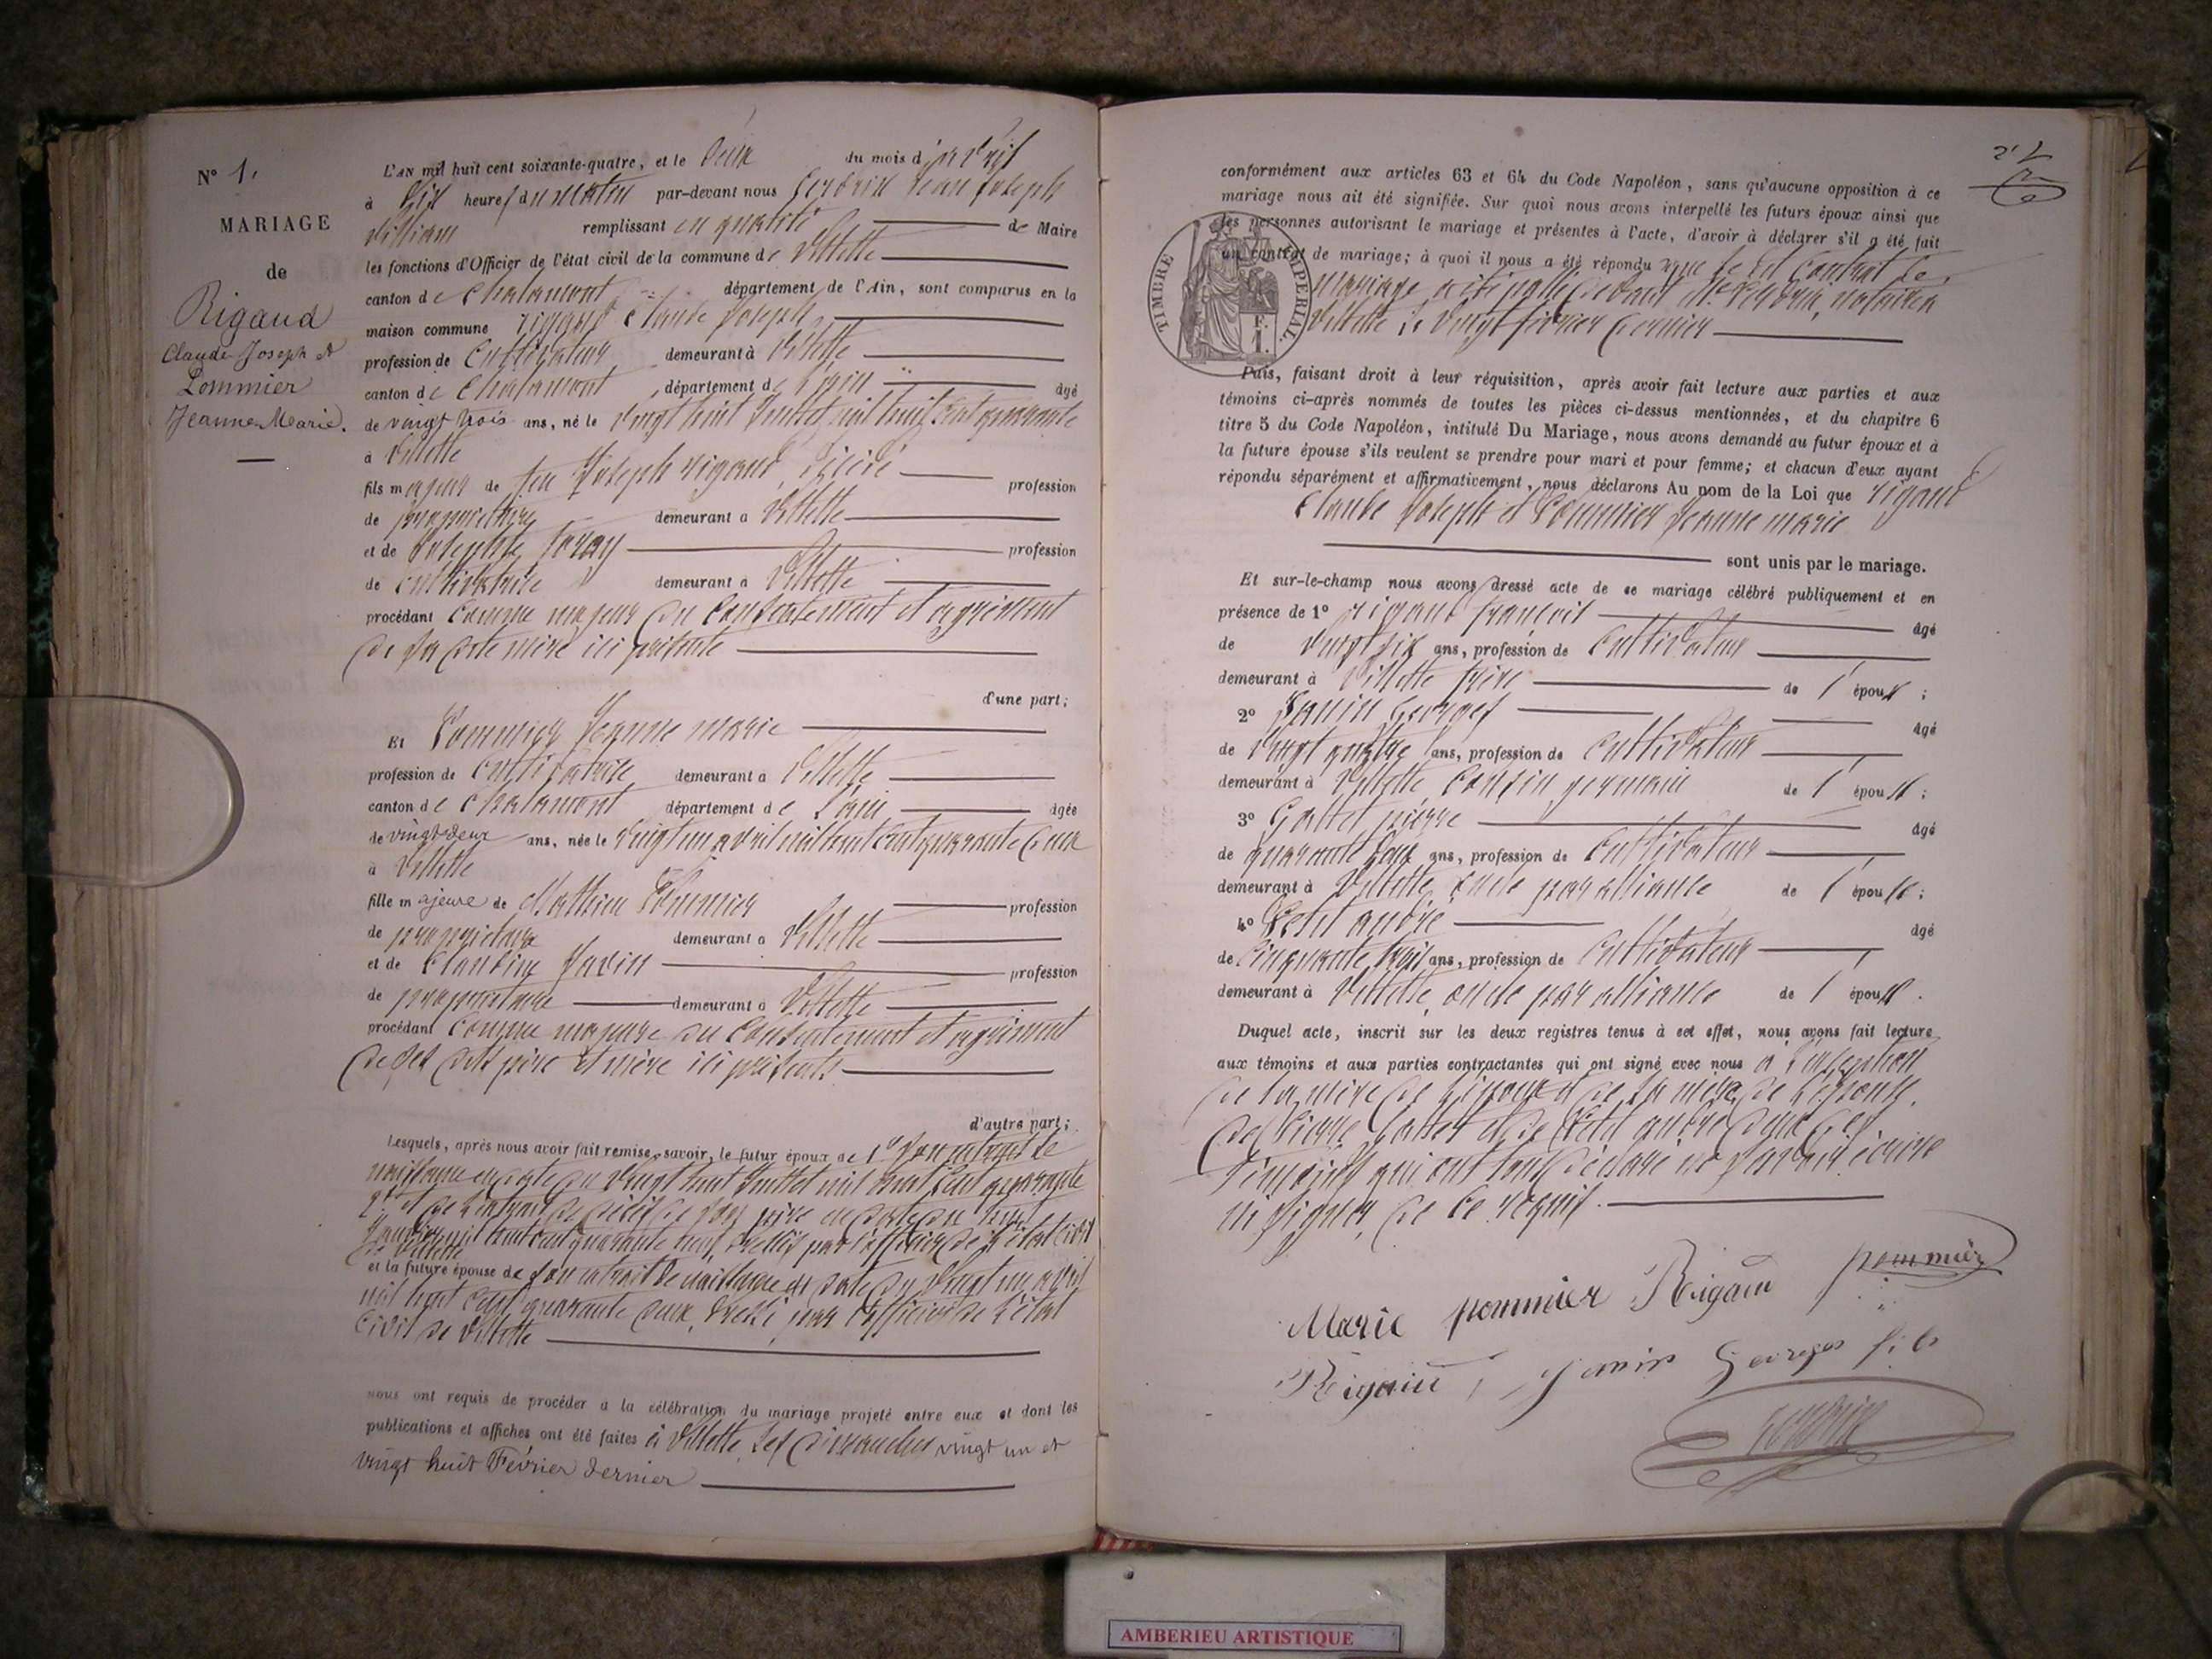 N° 1.
MARIAGE
de
Rigaud
Claude Joseph et
Pommier
Jeanne Marie.
L'AN mil huit cent soixante-quatre, et le Deux du mois d'avril
à dix heures du matin par-devant nous Jean Joseph
remplissant en qualité de Maire
les fonctions d'Officier de l'état civil de la commune de Villette
canton de Chalamont département de l'Ain, sont comparus en la
maison commune rigaud Claude Joseph
profession de Cultivateur demeurant à Villette
canton de Chalamont, département de l'ain âgé
de vingt trois ans, né le Vingt huit Juillet mil huit Cent quarante
à Villette
fils majeur de feu Joseph rigaud, décédé profession
de propriétaire demeurant à Villette
et de Josephte profession
de cultivatrice demeurant à Villette
procédant Comme majeur du Consentement et agrément
de sa dite mère ici présente
d'une part;
Et Pommier Jeanne marie
profession de Cultivatrice demeurant à Villette
canton de Chalamont département de l'ain âgée
de vingt deux ans, née le Vingt un avril mil huit Cent quarante deux
à Villette
fille majeure de Mathieu Pommier profession
de propriétaire demeurant à Villette
et de Claudine Janin profession
de propriétaire demeurant à Villette
procédant Comme majeure du Consentement et agrément
de ses dits père et mère ici présents
d'autre part;
Lesquels, après nous avoir fait remise, savoir, le futur époux de 1° Son extrait de
naissance en date du Vingt huit Juillet mil huit Cent quarante
2° et de l'extrait de décès de son père en date du
mil huit cent quarante dressés par l'officier de l'état civil
de Villette
et la future épouse de son extrait de naissance en date du Vingt un avril
mil huit Cent quarante deux, dressé par l'officier de l'état
Civil de Villette
nous ont requis de procéder à la célébration du mariage projeté entre eux et dont les
publications et affiches ont été faites à Villette, les dimanches vingt un et
vingt huit Février dernier
conformément aux articles 63 et 64 du Code Napoléon, sans qu'aucune opposition à ce
mariage nous ait été signifiée. Sur quoi nous avons interpellé les futurs époux ainsi que
les personnes autorisant le mariage et présentes à l'acte, d'avoir à déclarer s'il a été fait
un contrat de mariage; à quoi il nous a été répondu que le dit Contrat de
mariage a été passé devant Me notaire à
Villette le vingt février dernier
TIMBRE IMPERIAL.
Puis, faisant droit à leur réquisition, après avoir fait lecture aux parties et aux
témoins ci-après nommés de toutes les pièces ci-dessus mentionnées, et du chapitre 6
titre 5 du Code Napoléon, intitulé Du Mariage, nous avons demandé au futur époux et à
la future épouse s'ils veulent se prendre pour mari et pour femme; et chacun d'eux ayant
répondu séparément et affirmativement, nous déclarons Au nom de la Loi que rigaud
Claude Joseph et Pommier Jeanne marie
sont unis par le mariage.
Et sur-le-champ nous avons dressé acte de ce mariage célébré publiquement et en
présence de 1° rigaud françois âgé
de vingt six ans, profession de Cultivateur
demeurant à Villette frère de l'époux;
2° Janin Georges âgé
de vingt quatre ans, profession de Cultivateur
demeurant à Villette Cousin germain de l'épouse;
3° Gottet pierre âgé
de quarante deux ans, profession de Cultivateur
demeurant à Villette, oncle par alliance de l'épouse;
4° Petit andré âgé
de Cinquante trois ans, profession de Cultivateur
demeurant à Villette, oncle par alliance de l'époux.
Duquel acte, inscrit sur les deux registres tenus à cet effet, nous avons fait lecture
aux témoins et aux parties contractantes qui ont signé avec nous à l'exception
de la mère de l'époux et de la mère de l'épouse,
de Pierre Gottet et de Petit andré deux des
témoins qui ont tous déclaré ne savoir écrire
ni signer, de ce requis.
Marie pommier Rigaud pommier
Rigaud, Janin Georges fils
AMBERIEU ARTISTIQUE